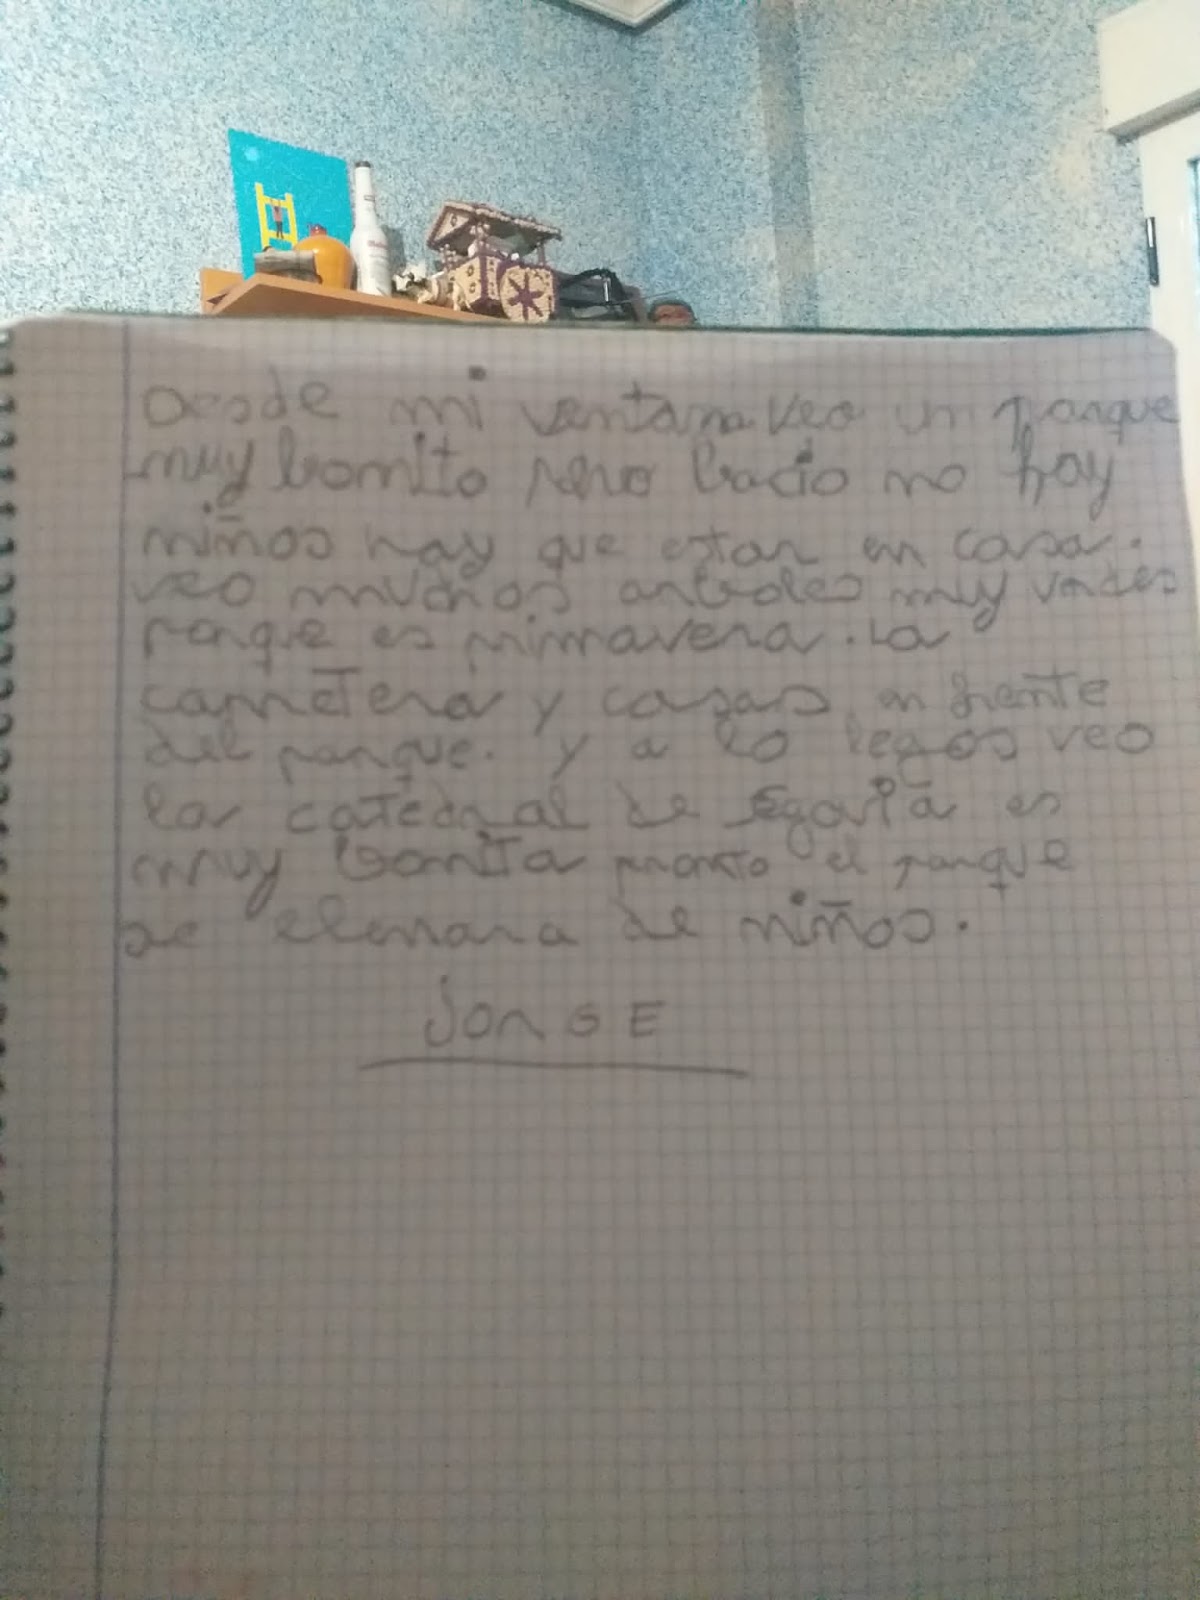 Desde mi ventana veo un parque
muy bonito pero bacio no hay
niños hay que estar en casa.
veo muchos arboles muy verdes
porque es primavera. La
carretera y casas en frente
del parque. y a lo legos veo
la catedral de Segovia es
muy bonita pronto el parque
se elenara de niños.
JORGE